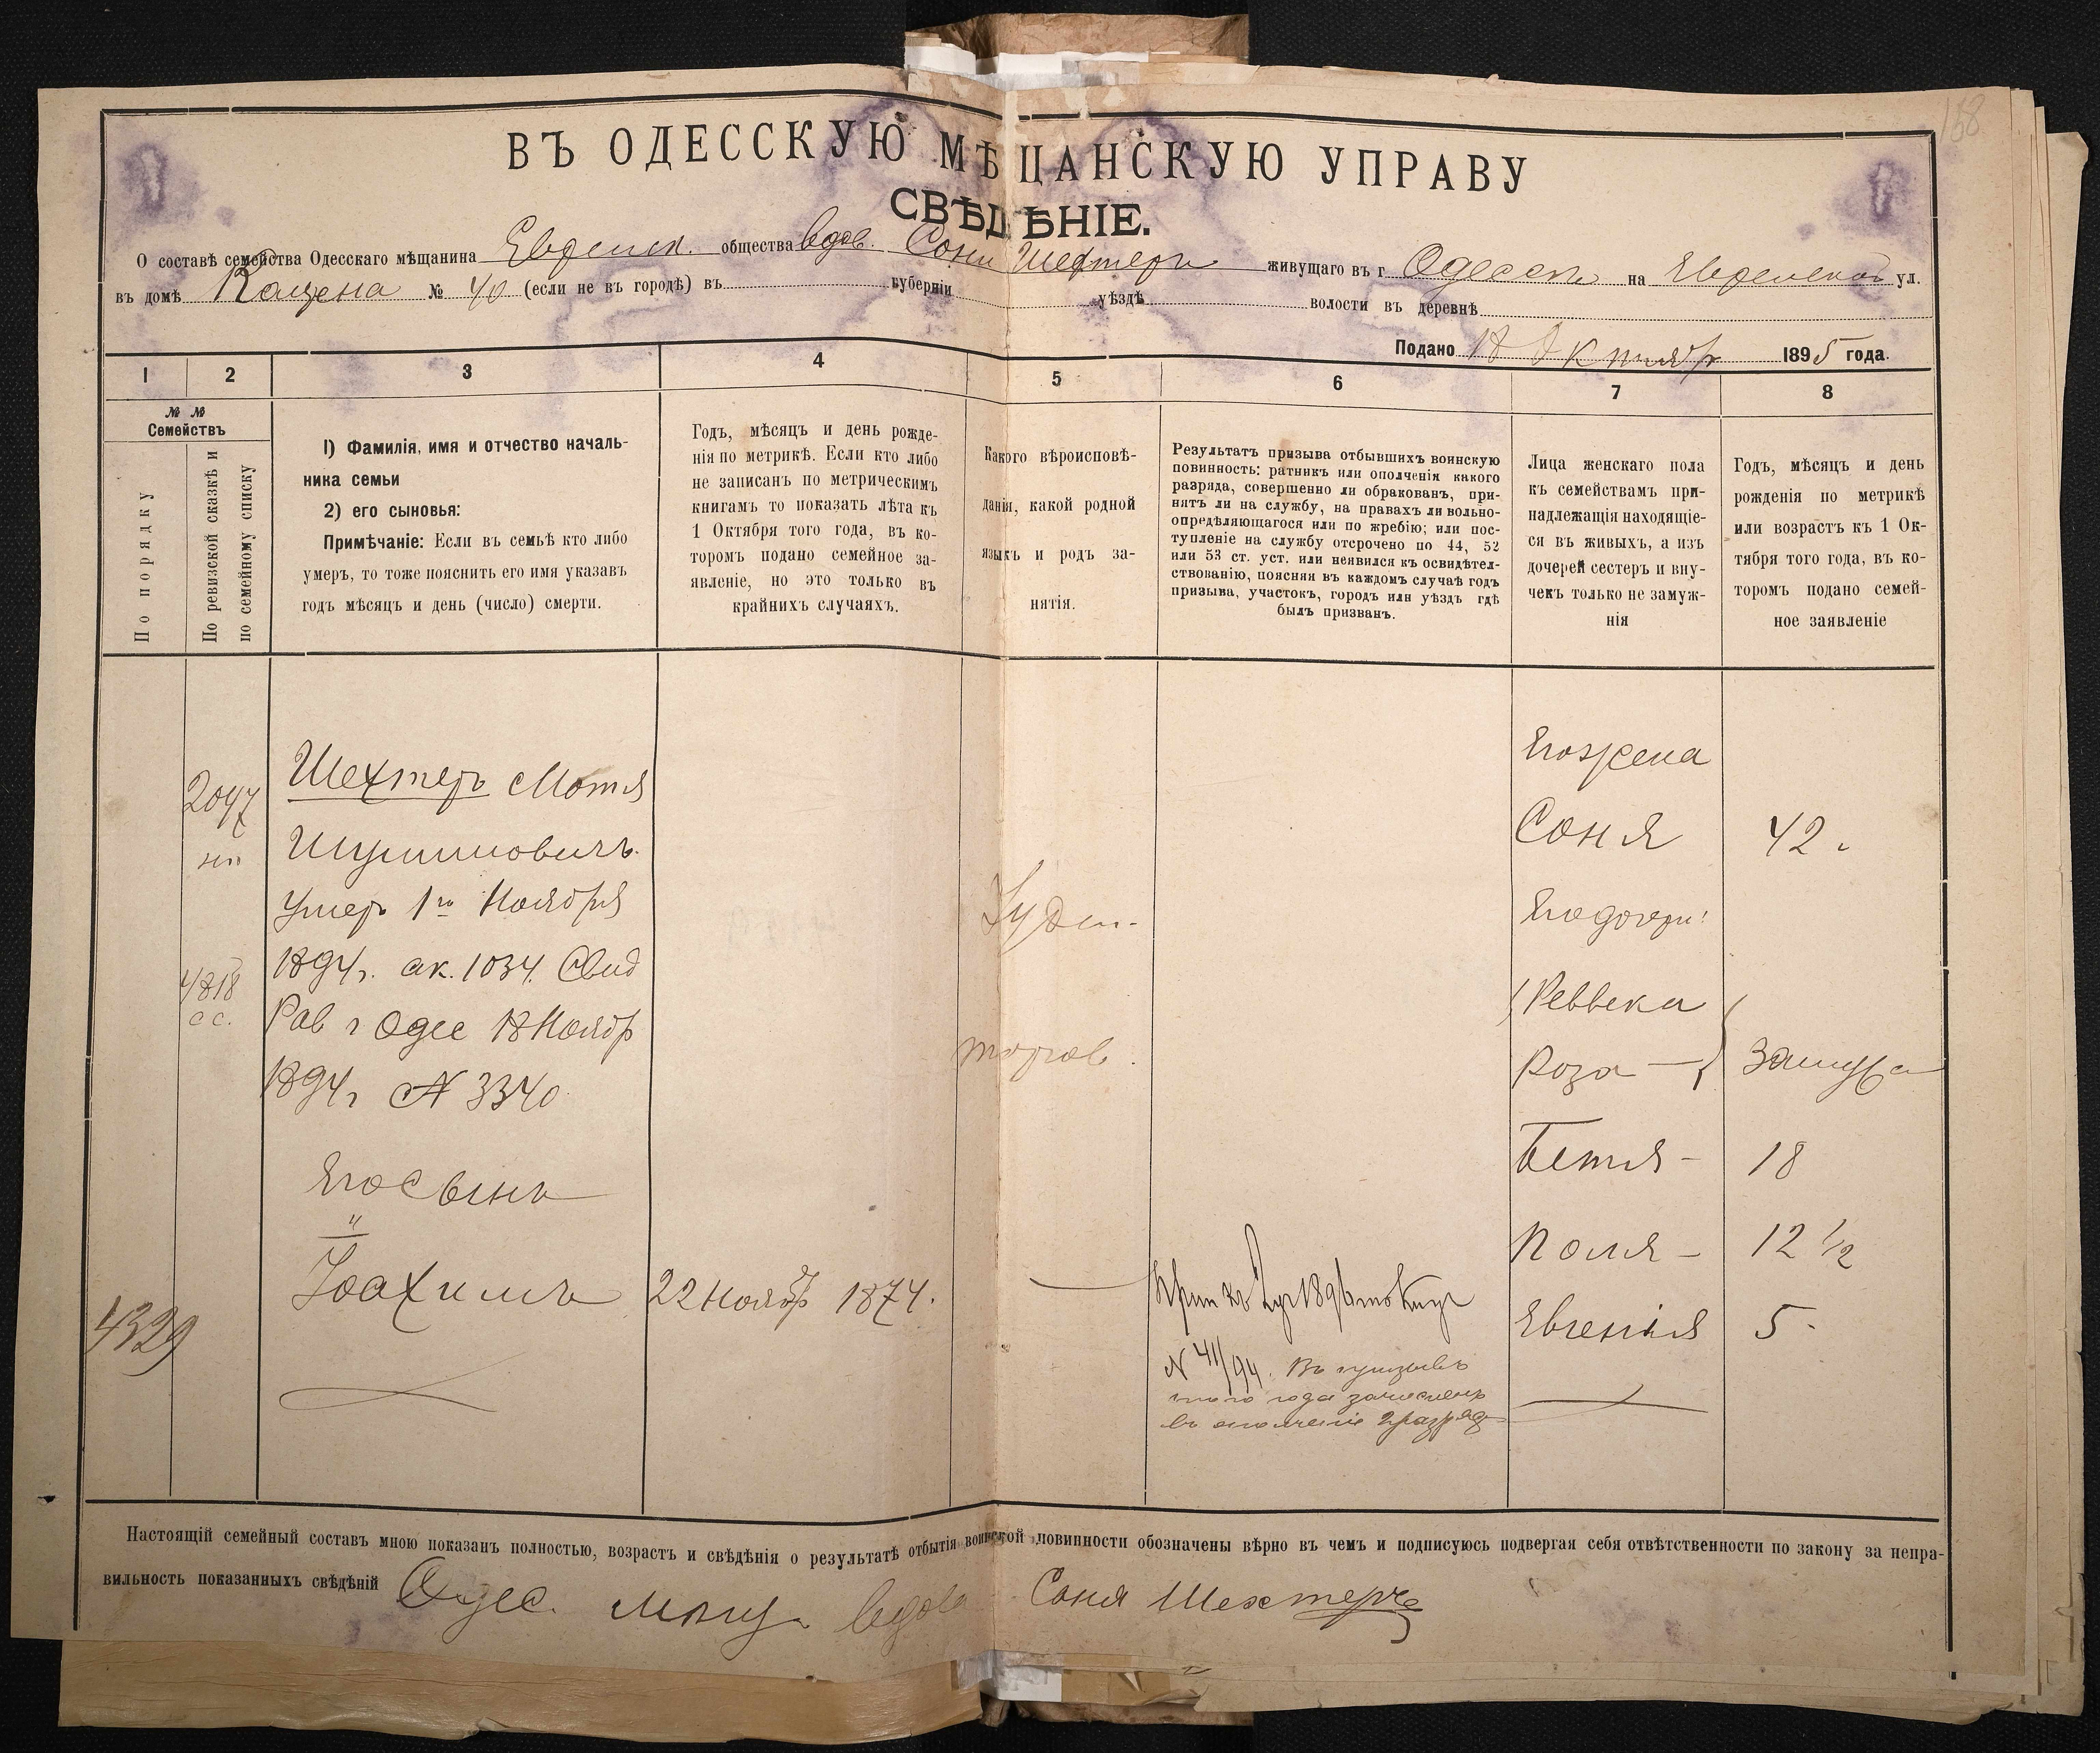 168
ВЪ ОДЕССКУЮ МѢЩАНСКУЮ УПРАВУ
СВѢДѢНІЕ.
О составѣ семейства Одесскаго мѣщанина Еврейск. общества вдов. Сони Шехтеръ живущаго въ г Одессѣ на Еврейской ул.
въ домѣ № 40 (если не въ городѣ) въ губерніи уѣздѣ волости въ деревнѣ
Подано 18 Октября 1895 года.
1 2 3 4 5 6 7 8
№ № Семействъ
По порядку
По ревизской сказкѣ и
по семейному списку
1) Фамилія, имя и отчество началь-
ника семьи
2) его сыновья:
Примѣчаніе: Если въ семьѣ кто либо
умеръ, то тоже пояснить его имя указавъ
годъ мѣсяцъ и день (число) смерти.
Годъ, мѣсяцъ и день рожде-
нія по метрикѣ. Если кто либо
не записанъ по метрическимъ
книгамъ то показать лѣта къ
1 Октября того года, въ ко-
торомъ подано семейное за-
явленіе, но это только въ
крайнихъ случаяхъ.
Какого вѣроисповѣ-
данія, какой родной
языкъ и родъ за-
нятія.
Результатъ призыва отбывшихъ воинскую
повинность: ратникъ или ополченія какого
разряда, совершенно ли обракованъ, при-
нятъ ли на службу, на правахъ ли вольно-
опредѣляющагося или по жребію; или пос-
тупленіе на службу отсрочено по 44, 52
или 53 ст. уст. или неявился къ освидѣтел-
ствованію, поясняя въ каждомъ случаѣ годъ
призыва, участокъ, городъ или уѣздъ гдѣ
былъ призванъ.
Лица женскаго пола
къ семействамъ при-
надлежащія находящіе-
ся въ живыхъ, а изъ
дочерей сестеръ и вну-
чекъ только не замуж-
нія
Годъ, мѣсяцъ и день
рожденія по метрикѣ
или возрастъ къ 1 Ок-
тября того года, въ ко-
торомъ подано семей-
ное заявленіе
2047
Шехтеръ Мотя
Шулимовичъ
умеръ 1го Ноября
1894г. ак. 1034. Свид
Рав г Одес 18 Ноябр
1894г № 3340
4818
с с.
Его Сынъ
"
Іоахимъ
22 Ноябр 1874.
4329
Іудей-
торгов.
№ 411/94. Въ призывѣ
этого года зачисленъ
въ ополченіе 2 разряд
Его жена
Соня 42.
Его дочери:
Реввека
Роза — замужс
Бетя - 18
Поля - 12 1/2
Евгенія 5.
Настоящій семейный составъ мною показанъ полностью, возрастъ и свѣдѣнія о результатѣ отбытія воинской повинности обозначены вѣрно въ чемъ и подписуюсь подвергая себя отвѣтственности по закону за непра-
вильность показанныхъ свѣдѣній Одес. мѣщ. вдова Соня Шехтеръ